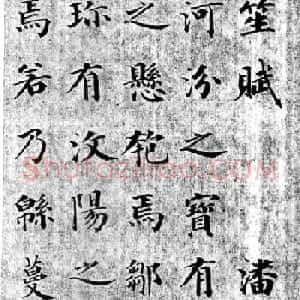 笙賦　潘
河汾之寶有
之懸匏焉鄒
珍有汶陽之
焉若乃緜蔓